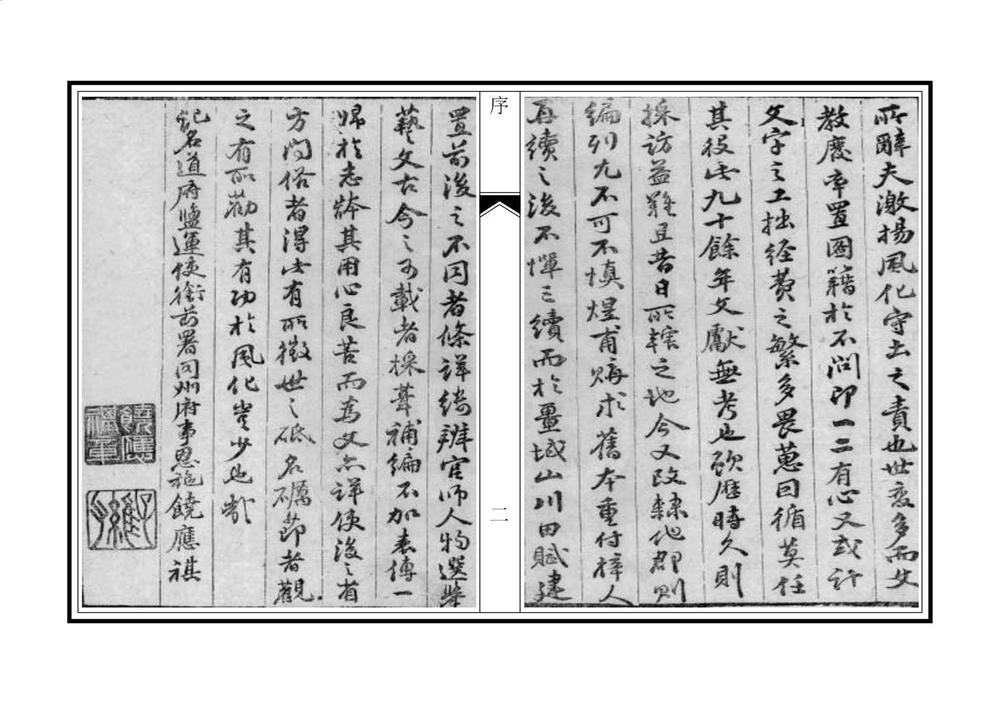 所辭夫激揚風化守土之責也世變多而文
教廢率置圖籍於不問即一二有心又或計
文字之工拙經費之繁多畏葸因循莫任
其役此九十餘年文獻無考也歐歷時久則
採訪益難且昔日所轄之地今又改隸他郡則
編列尤不可不慎煜甫購求舊本重付梓人
再續之後不憚三續而於疆域山川田賦建
序
二
置前後之不同者條詳縷辨官師人物選舉
藝文古今之可載者採葺補編不加表傳一
歸於志體其用心良苦而為文亦詳使後之有
方問俗者得此有所徵世之砥名礪節者觀
之有所勸其有功於風化豈少也歟
記名道府鹽運使銜前署同州府事恩施饒應祺